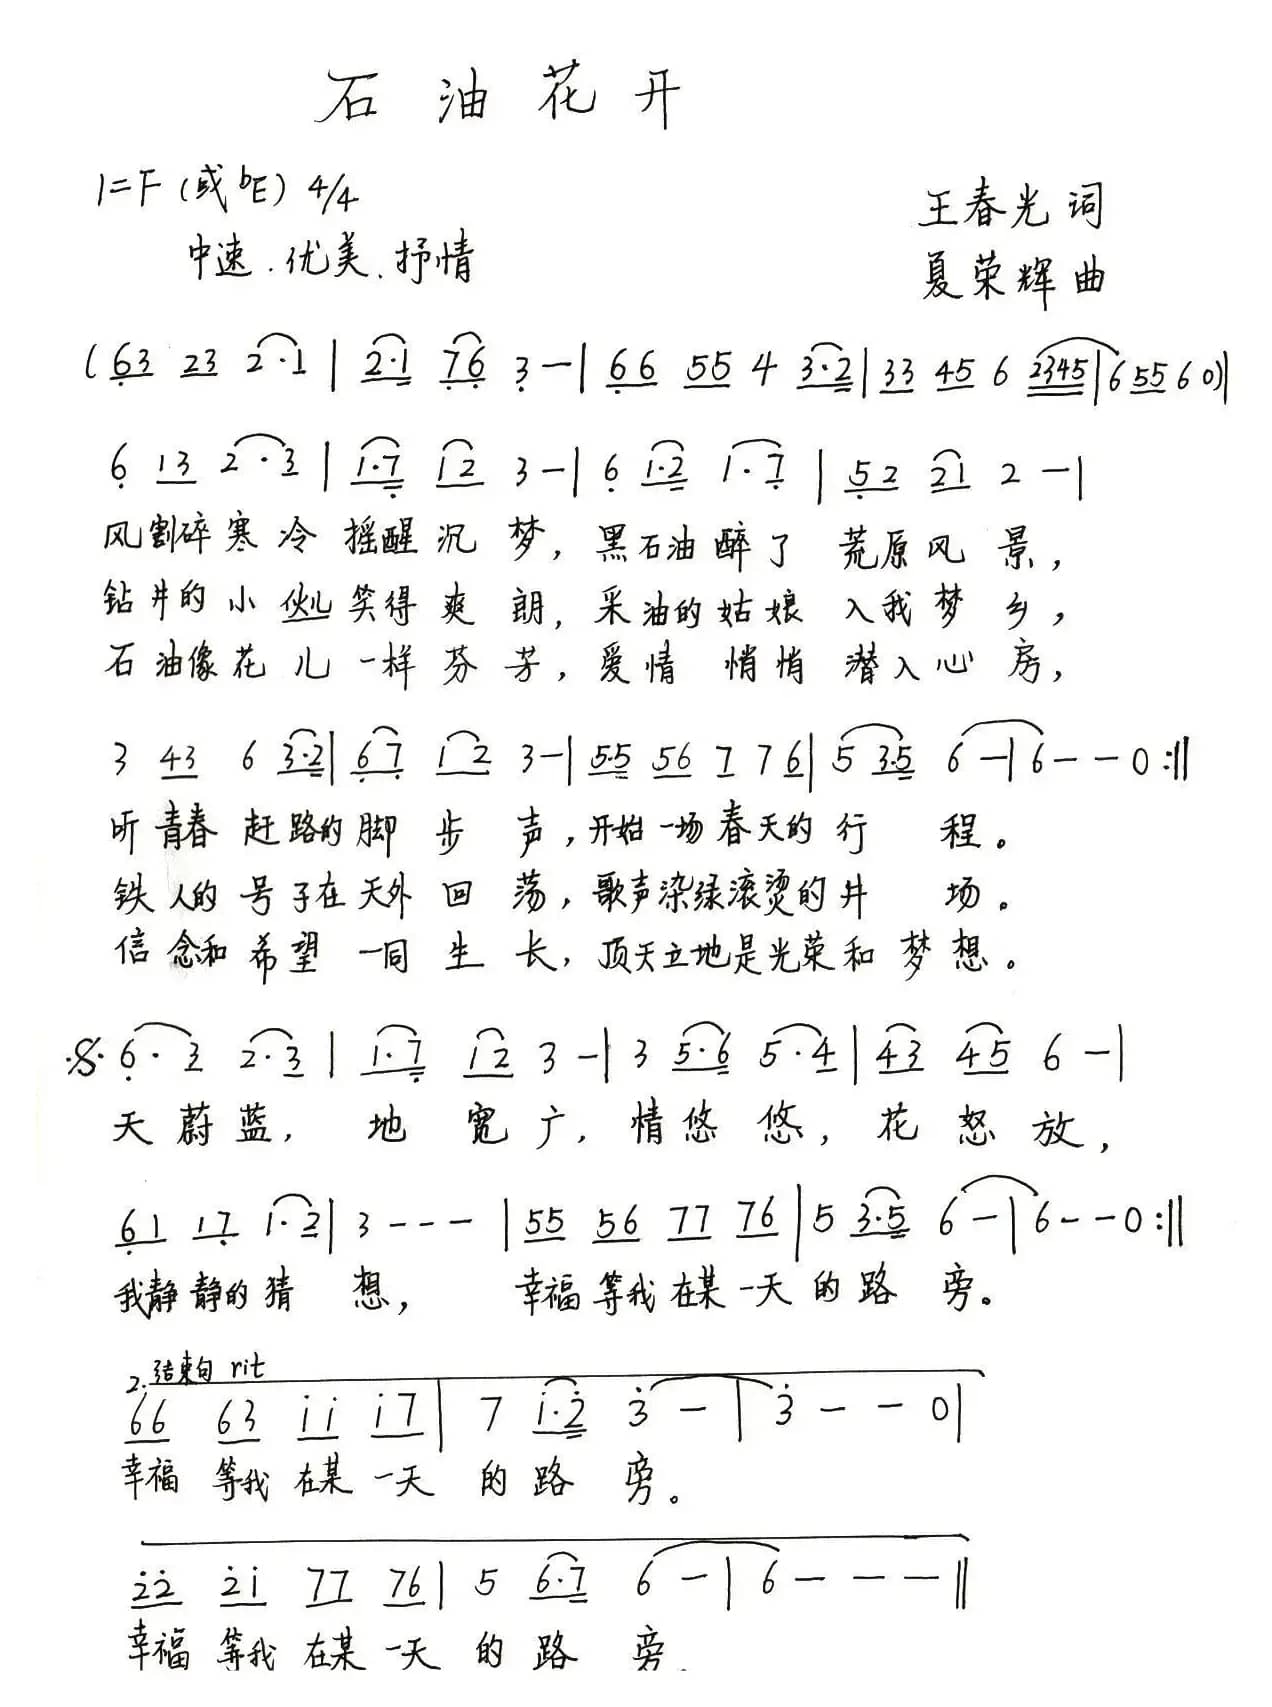 石油花开
1=F(或bE) 4/4
王春光词
中速.优美.抒情
夏荣辉曲
(63 23 2·1 | 2·1 76 3 — | 66 55 4 3·2 | 33 45 6 2345 | 6 55 6 0) |
6 13 2·3 | 1·7 12 3 — | 6 1·2 1·7 | 52 21 2 — |
风割碎寒冷摇醒沉梦,黑石油醉了荒原风景,
钻井的小伙儿笑得爽朗,采油的姑娘入我梦乡,
石油像花儿一样芬芳,爱情悄悄潜入心房,
3 43 6 3·2 | 67 12 3 — | 5·5 56 7 7 6 | 5 3·5 6 — | 6 — — 0 :||
听青春赶路的脚步声,开始一场春天的行程。
铁人的号子在天外回荡,歌声染绿滚烫的井场。
信念和希望一同生长,顶天立地是光荣和梦想。
𝄋 6·3 2·3 | 1·7 12 3 — | 3 5·6 5·4 | 43 45 6 — |
天蔚蓝,地宽广,情悠悠,花怒放,
61 17 1·2 | 3 - - - | 55 56 77 76 | 5 3·5 6 — | 6 - - 0 :||
我静静的猜想,幸福等我在某一天的路旁。
2.结束句 rit
66 63 i̇i̇ i̇7 | 7 i̇·2̇ 3̇ — | 3̇ — — 0 |
幸福等我在某一天的路旁。
2̇2̇ 2̇i̇ 77 76 | 5 6·7 6 — | 6 — — — ||
幸福等我在某一天的路旁.